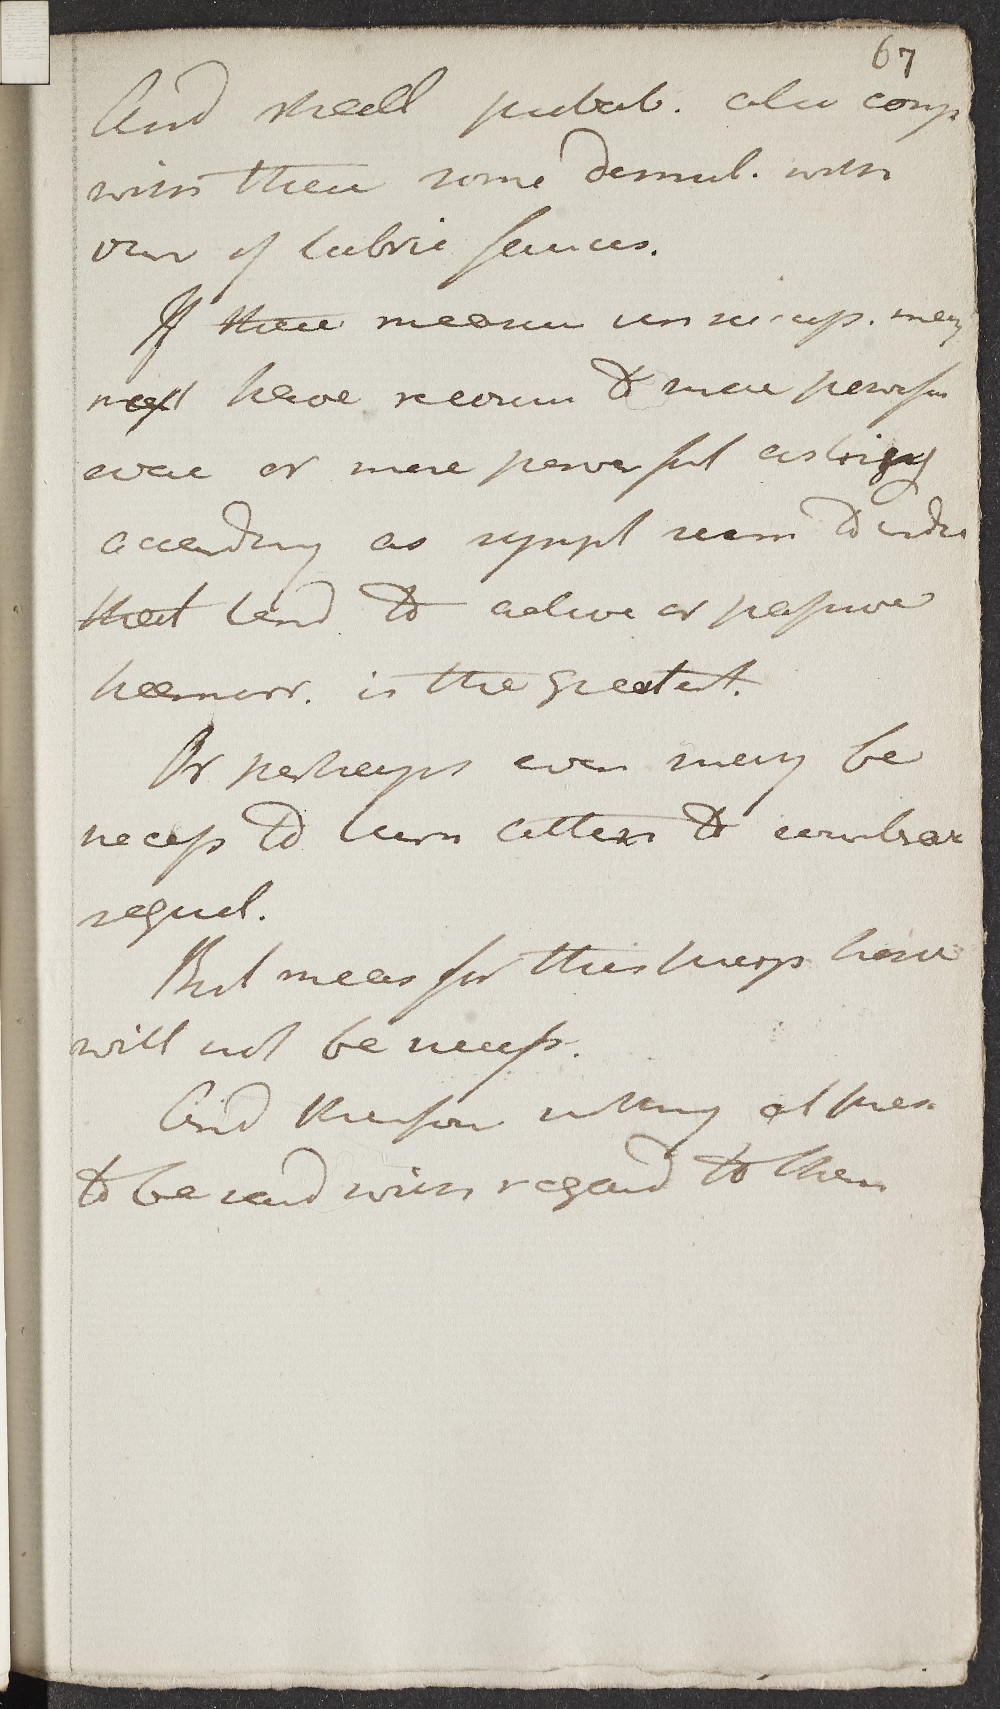 67
And shall probab. also comp
with these some demul. with
view of lubric fauces.
If these measures unsuccessf. may
next have recourse to more powerful
evac or more powerful astring
according as sympt seem to indic
that tend to active or passive
haemorr. is the greatest.
Or perhaps even may be
necess to turn atten to
sequel.
But meas for this purp hope
will not be necess.
And therefore nothing at pres
to be said with regard to them